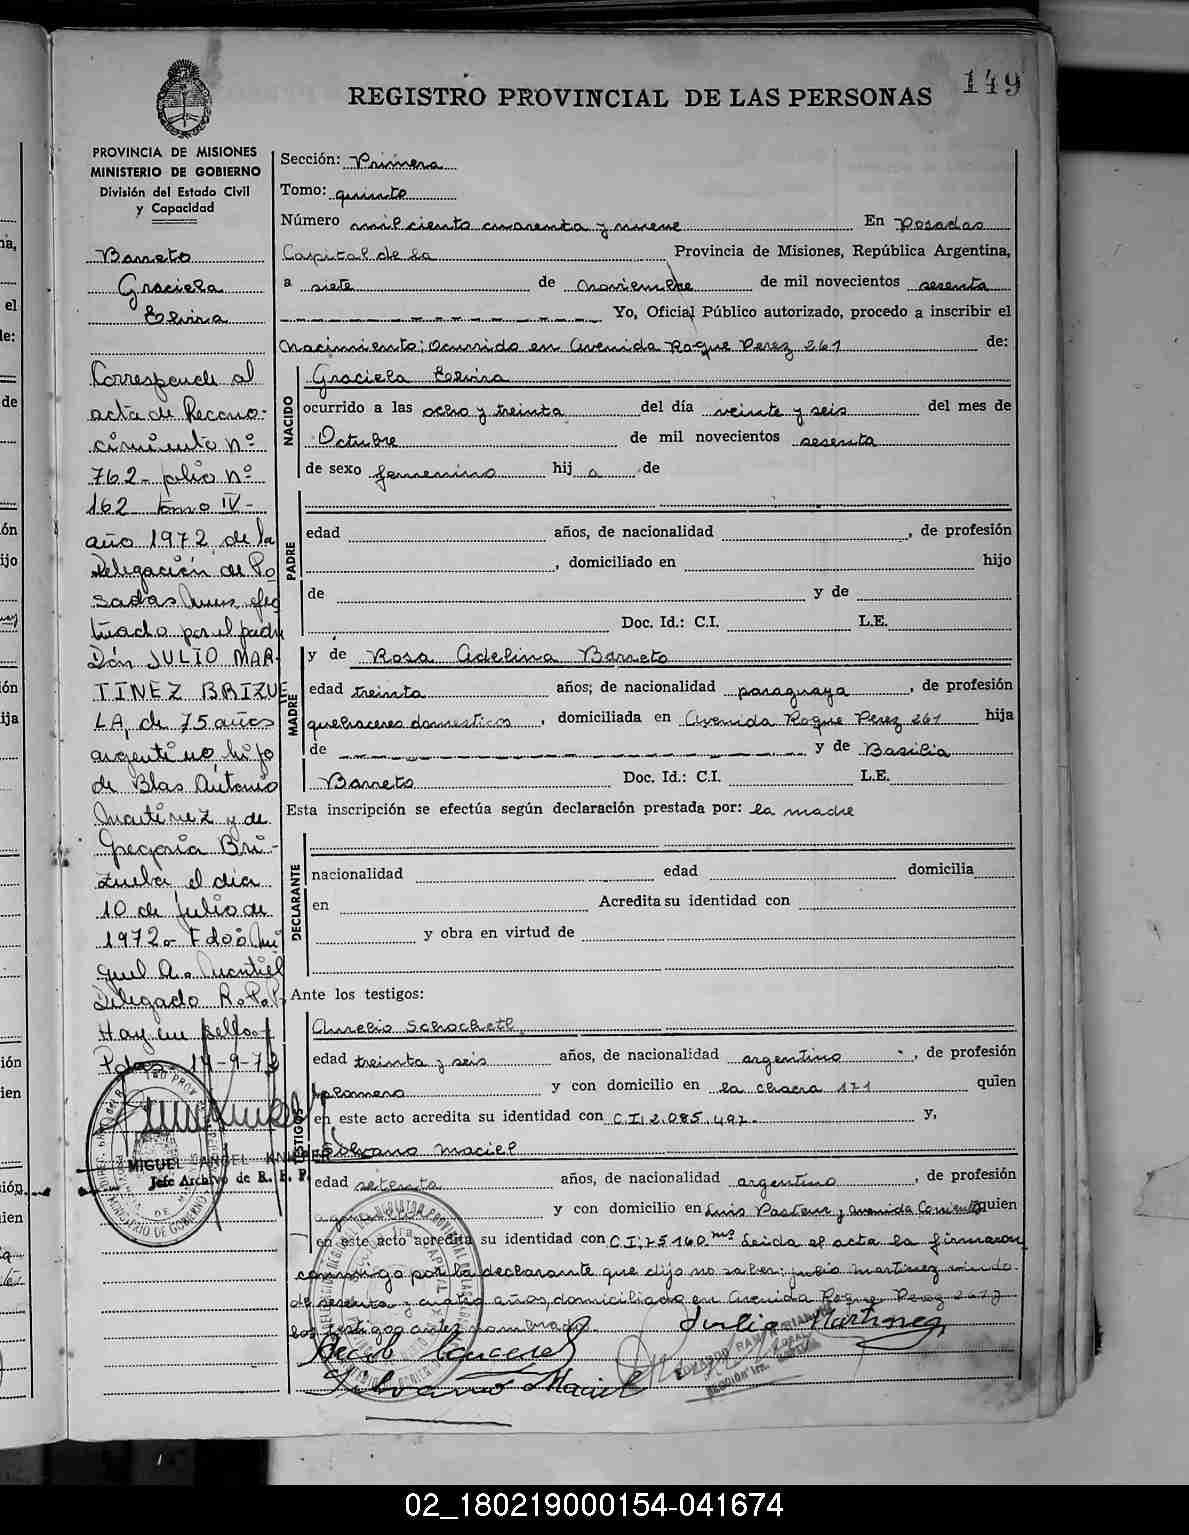 149
REGISTRO PROVINCIAL DE LAS PERSONAS
PROVINCIA DE MISIONES
MINISTERIO DE GOBIERNO
División del Estado Civil
y Capacidad
Barreto
Graciela
Elvira
Corresponde al
acta de Recono-
cimiento nº
762 - folio nº
162 tomo IV-
año 1972, de la
Delegación de Po
sadas
tuado por el padre
Don JULIO MAR-
TINEZ BRIZUE
LA, de 75 años
argentino hijo
de Blas Antonio
Martinez y de
Gregoria Bri-
zuela el día
10 de julio de
1972- Fdo: Mi
guel A. Montiel
Delegado R.P.P.
Hay un sello.-
Pdas. 14-9-72
MIGUEL ANGEL
Jefe Archivo de R. P. P.
Sección: Primera
Tomo: quinto
Número mil ciento cuarenta y nueve En Posadas
Capital de la Provincia de Misiones, República Argentina,
a siete de noviembre de mil novecientos sesenta
Yo, Oficial Público autorizado, procedo a inscribir el
nacimiento: ocurrido en Avenida Roque Perez 261 de:
NACIDO
Graciela Elvira
ocurrido a las ocho y treinta del día veinte y seis del mes de
Octubre de mil novecientos sesenta
de sexo femenino hij a de
PADRE
edad años, de nacionalidad , de profesión
, domiciliado en hijo
de y de
Doc. Id.: C.I. L.E.
MADRE
y de Rosa Adelina Barreto
edad treinta años; de nacionalidad paraguaya , de profesión
quehaceres domesticos , domiciliada en Avenida Roque Perez 261 hija
de y de Basilia
Barreto Doc. Id.: C.I. L.E.
Esta inscripción se efectúa según declaración prestada por: la madre
DECLARANTE
nacionalidad edad domicilia
en Acredita su identidad con
y obra en virtud de
Ante los testigos:
TESTIGOS
Aurelio
edad treinta y seis años, de nacionalidad argentino , de profesión
plomero y con domicilio en la chacra 171 quien
en este acto acredita su identidad con C.I: 2.085.497. y,
Silvano Maciel
edad setenta años, de nacionalidad argentino , de profesión
y con domicilio en Luis Pasteur y avenida Corrientes quien
en este acto acredita su identidad con C.I: 75160 Mnes Leida el acta la firmaron
conmigo por la declarante que dijo no saber: julio martinez viudo
de sesenta y cuatro años, domiciliado en Avenida Roque Perez 261 y
los testigos antes nombrados.
Julio Martinez
Silvano Maciel
02_180219000154-041674